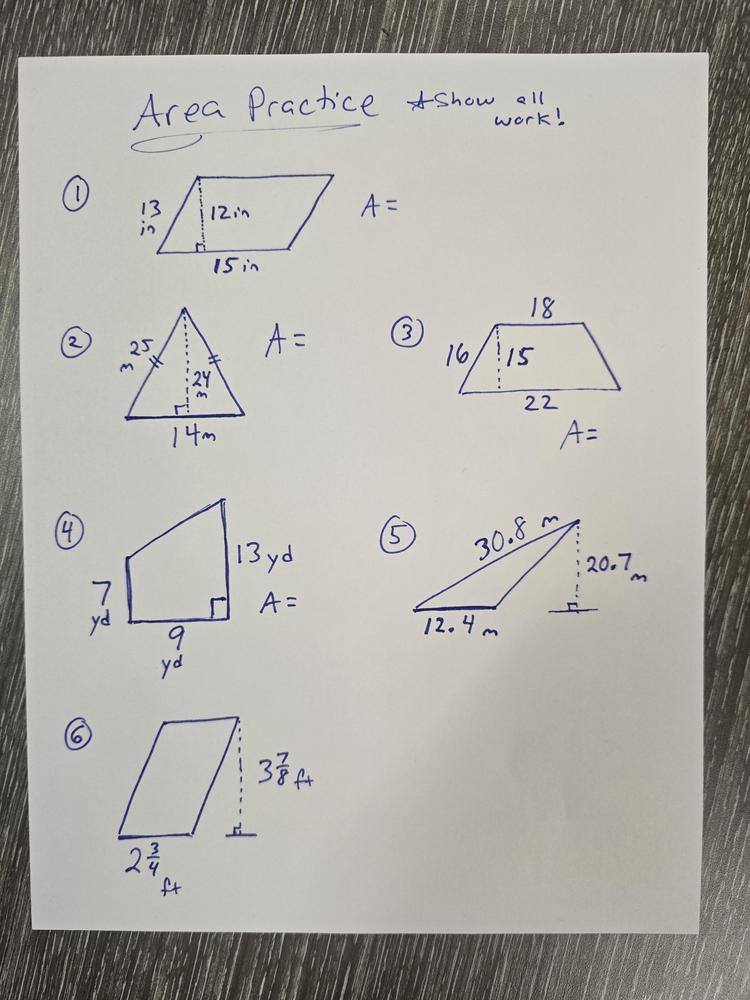 Area Practice ☆Show all
work!
① 
13
in
12in
15in
A=
②
25
m
24
m
14m
A=
③
18
16
15
22
A=
④
7
yd
13yd
9
yd
A=
⑤
30.8 m
20.7
m
12.4 m
⑥
3 7/8 ft
2 3/4
ft